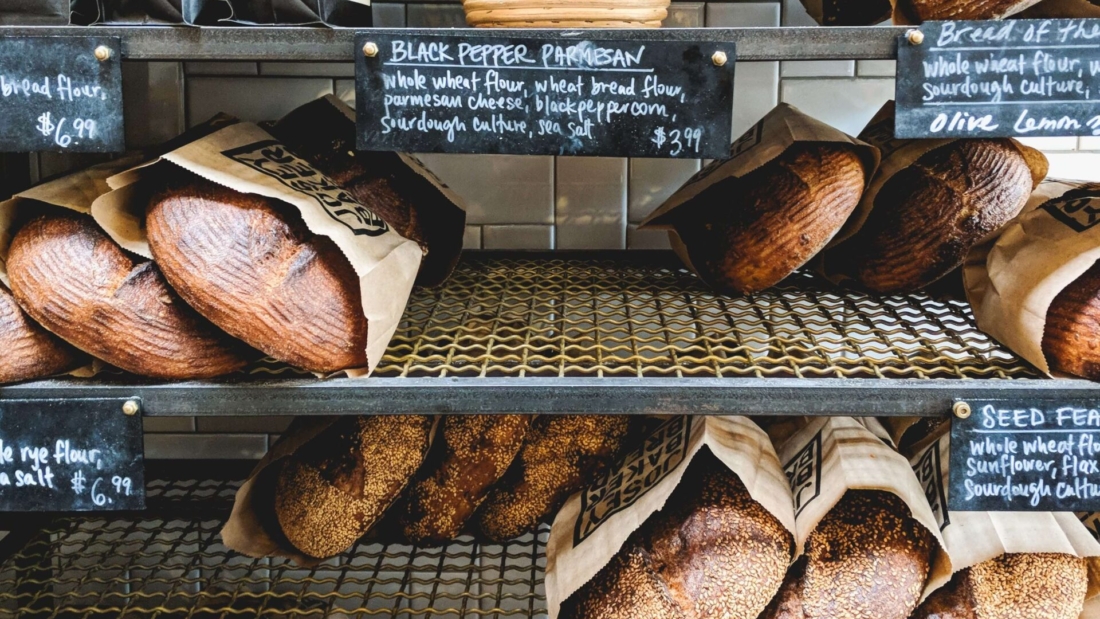 bread flour,
$6.99
BLACK PEPPER PARMESAN
whole wheat flour, wheat bread flour,
parmesan cheese, blackpeppercorn,
sourdough culture, sea salt
$3.99
Bread of the
whole wheat flour, w
sourdough culture,
Olive Lemon
JOSEY
BAKER
le rye flour,
a salt $6.99
JOSEY
BAKER
BRE
SEED FEA
whole wheat flo
sunflower, flax
sourdough cultu